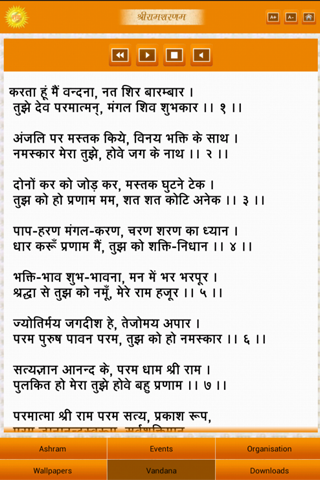 श्रीरामशरणम्
करता हूं मैं वन्दना, नत शिर बारम्बार ।
तुझे देव परमात्मन्, मंगल शिव शुभकार ।। १ ।।
अंजलि पर मस्तक किये, विनय भक्ति के साथ ।
नमस्कार मेरा तुझे, होवे जग के नाथ ।। २ ।।
दोनों कर को जोड़ कर, मस्तक घुटने टेक ।
तुझ को हो प्रणाम मम, शत शत कोटि अनेक ।। ३ ।।
पाप-हरण मंगल-करण, चरण शरण का ध्यान ।
धार करूँ प्रणाम मैं, तुझ को शक्ति-निधान ।। ४ ।।
भक्ति-भाव शुभ-भावना, मन में भर भरपूर ।
श्रद्धा से तुझ को नमूँ, मेरे राम हजूर ।। ५ ।।
ज्योतिर्मय जगदीश हे, तेजोमय अपार ।
परम पुरुष पावन परम, तुझ को हो नमस्कार ।। ६ ।।
सत्यज्ञान आनन्द के, परम धाम श्री राम ।
पुलकित हो मेरा तुझे होवे बहु प्रणाम ।। ७ ।।
परमात्मा श्री राम परम सत्य, प्रकाश रूप,
Ashram Events Organisation
Wallpapers Vandana Downloads